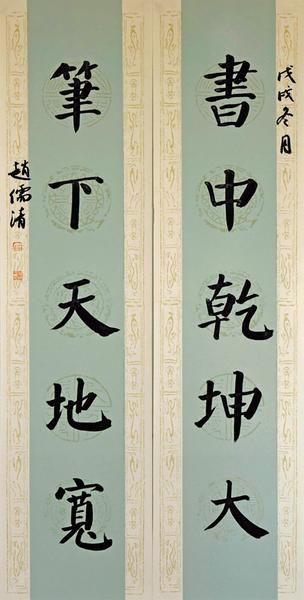 戊戌冬月
書中乾坤大
筆下天地寬
趙儒清